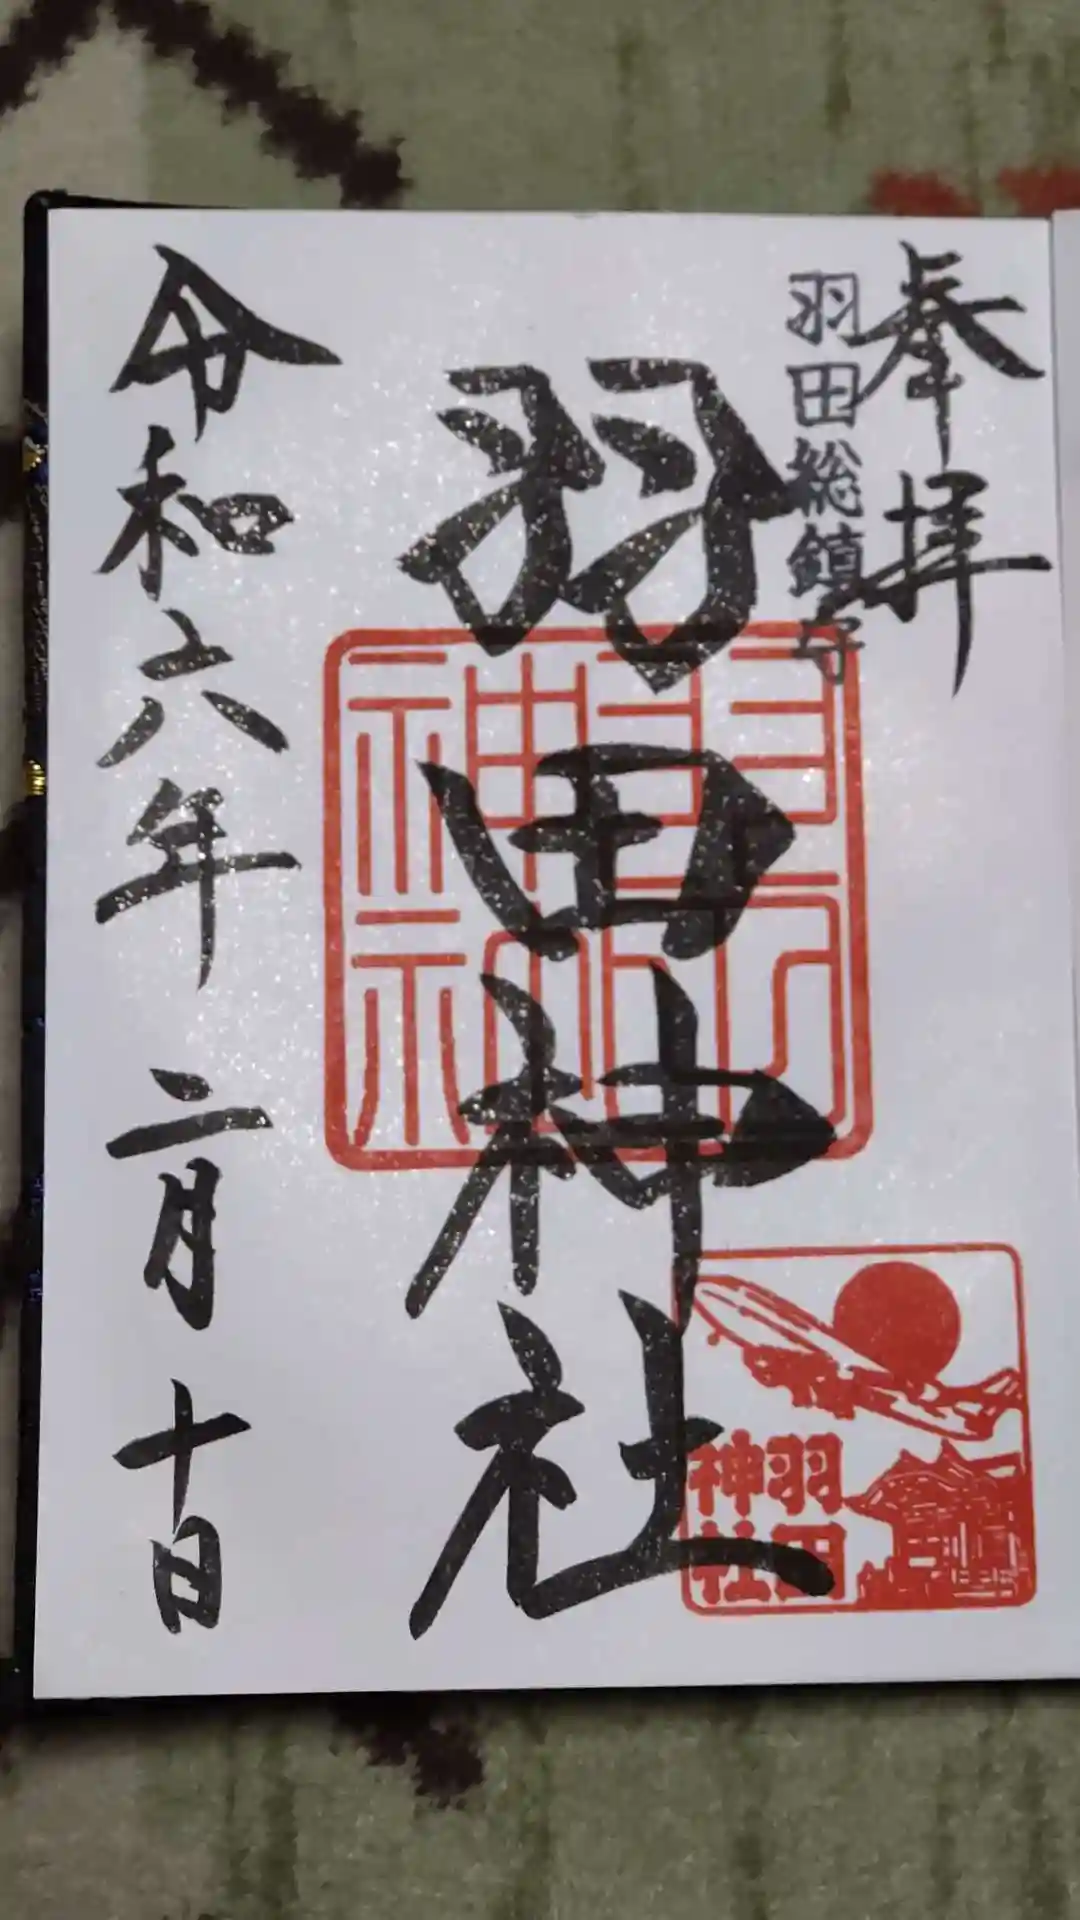 奉拝
羽田総鎮守
羽田神社
令和六年二月十日
羽田神社
羽田神社